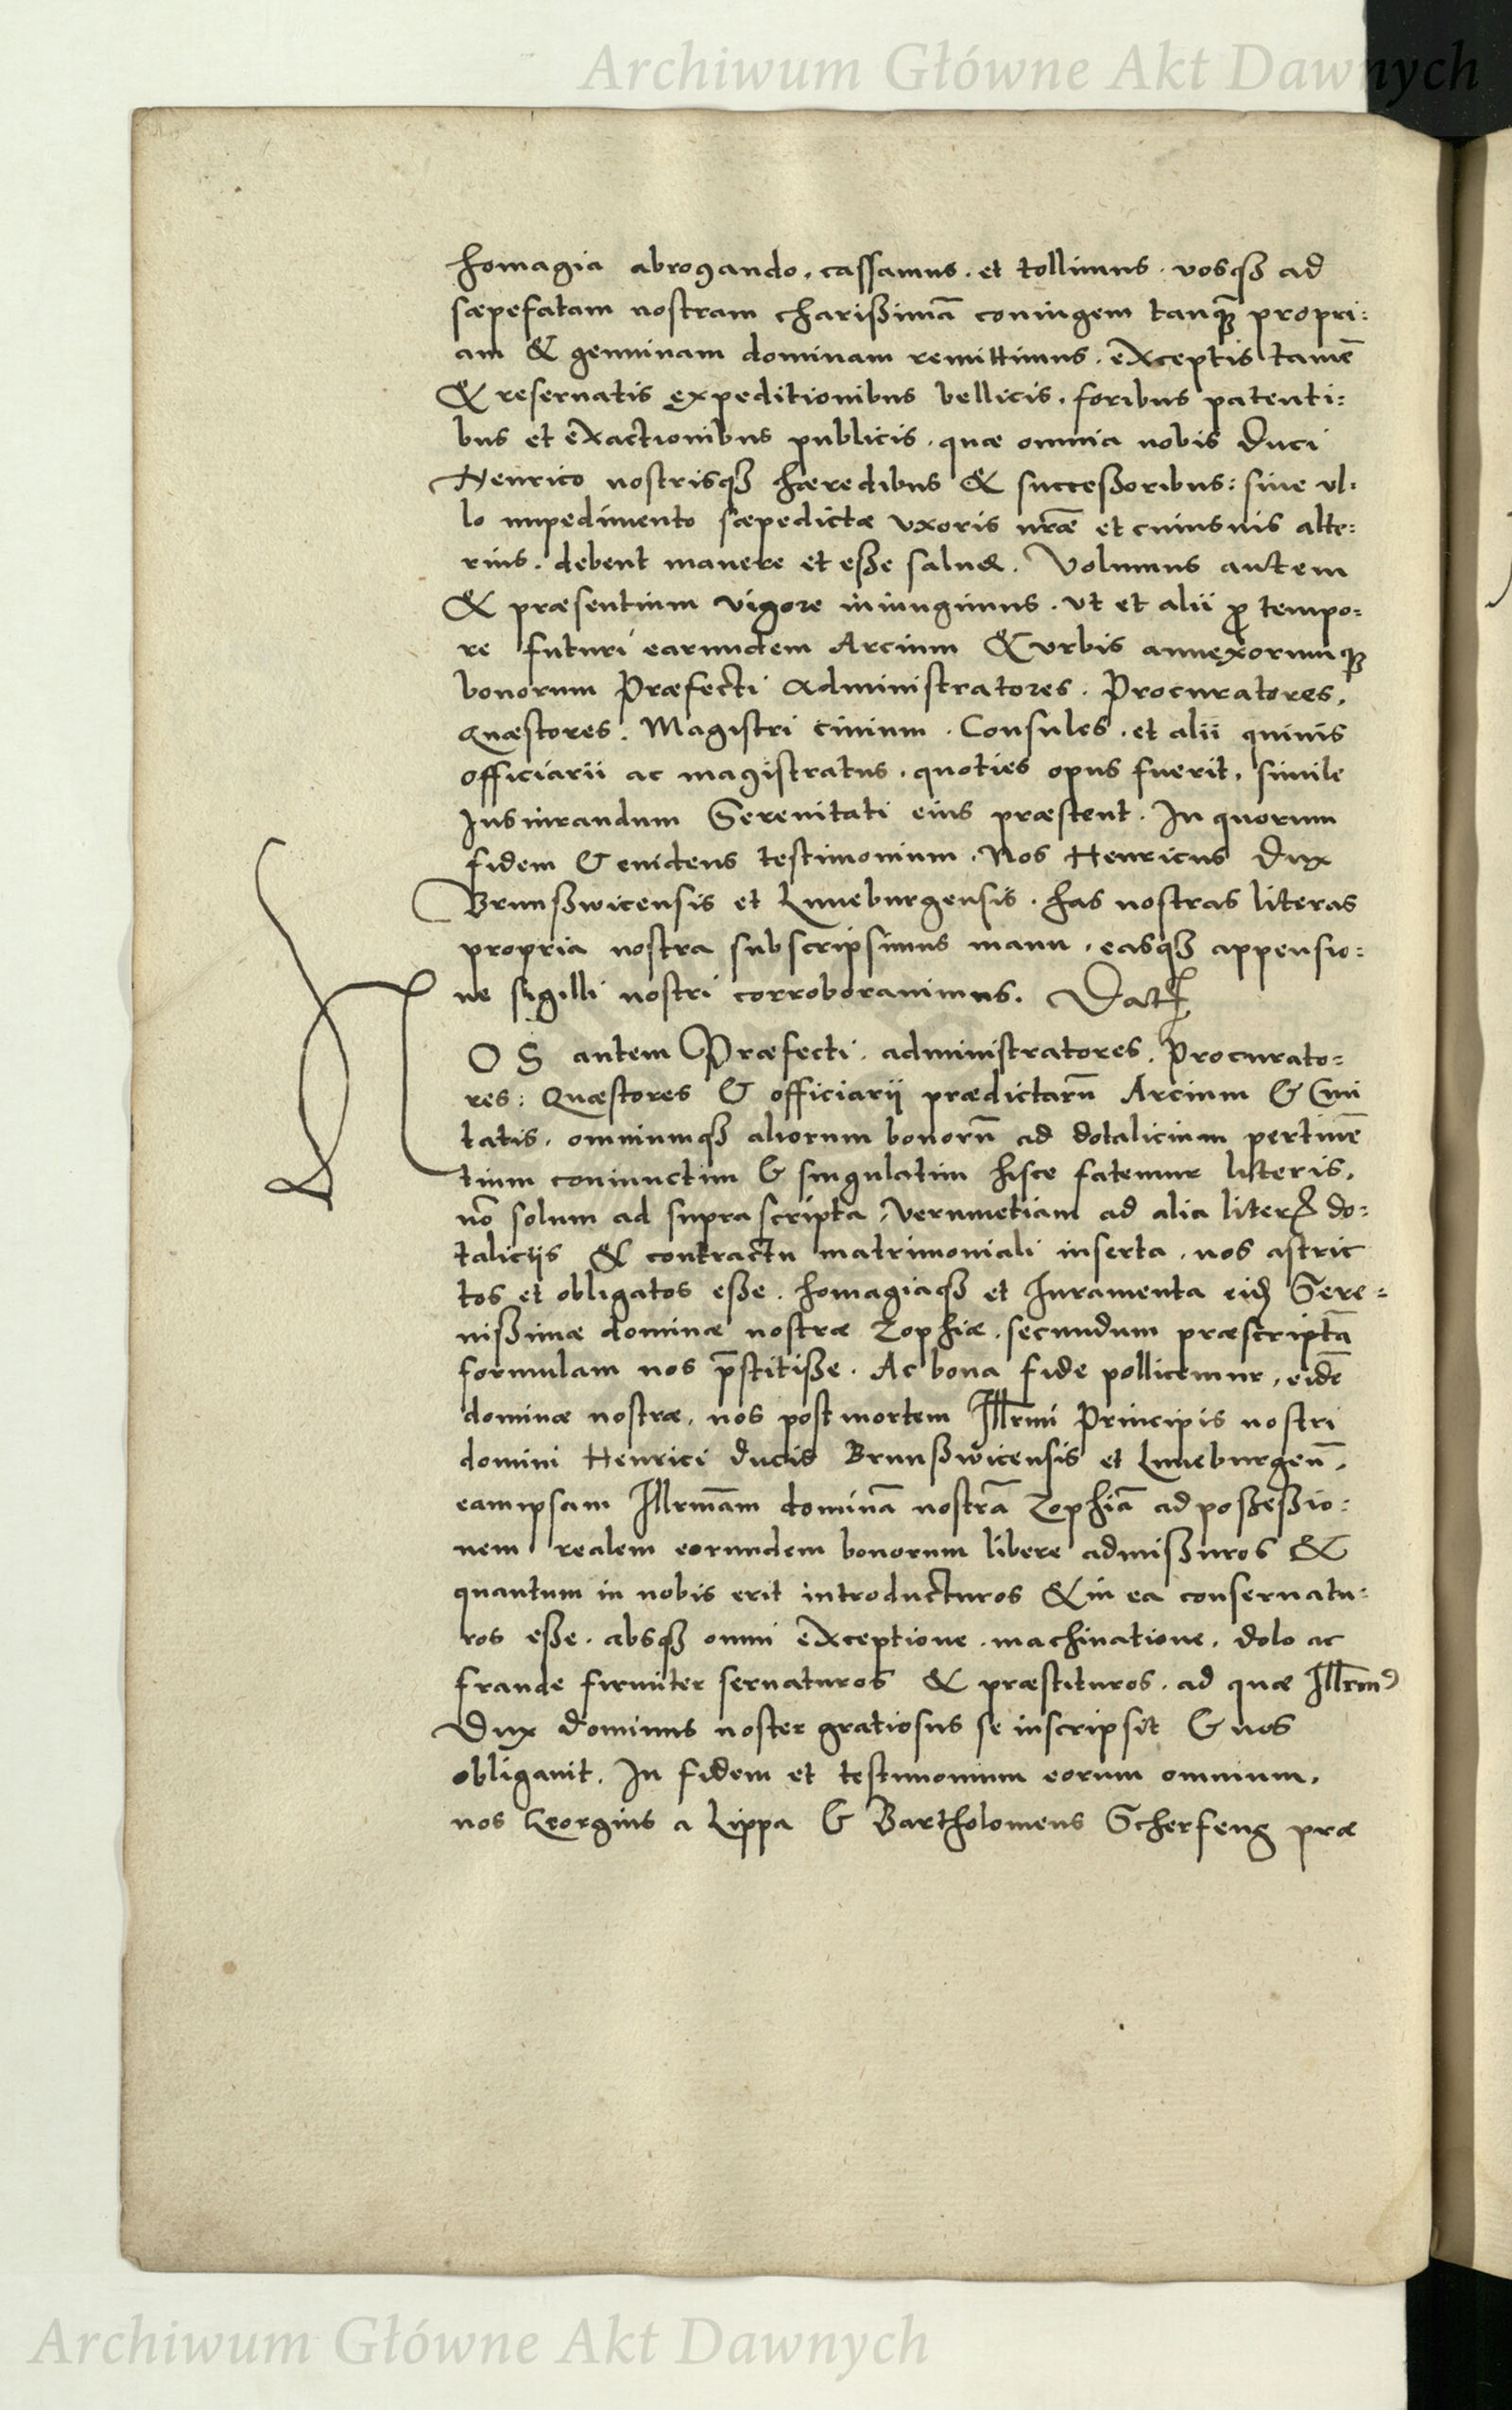 Archiwum Główne Akt Dawnych
homagia abrogando, cassamus. et tollimus. vosqȝ ad
sæpefatam nostram charißimā coniugem tanqȝ propri:
am & genuinam dominam remittimus. exceptis tamē
& reseruatis expeditionibus bellicis, foribus patenti:
bus et exactionibus publicis. quæ omnia nobis Duci
Henrico nostrisqȝ hæredibus & succeßoribus: siue vl:
lo impedimento sæpedictæ vxoris nr̄æ et cuiusuis alte:
rius. debent manere et eße saluę. Volumus autem
& præsentium vigore iniungimus. vt et alii ꝓ tempo:
re futuri earundem Arcium & vrbis annexorumqȝ
bonorum Præfecti Administratores. Procuratores,
Quæstores. Magistri ciuium. Consules. et alii quiuis
officiarii ac magistratus. quoties opus fuerit, simile
Iusiurandum Serenitati eius præstent. In quorum
fidem & euidens testimonium. Nos Henricus Dux
Brunßwicensis et Luneburgensis. has nostras literas
propria nostra subscripsimus manu, easqȝ appensio:
ne sigilli nostri corroborauimus. Datꝭ
NOS autem Præfecti. administratores. Procurato:
res: Quæstores & officiarij prædictarū Arcium & Ciui
tatis. omniumqȝ aliorum bonorū ad dotalicium pertinē
tium coniunctim & singulatim hisce fatemur literis,
nō solum ad suprascripta, verumetiam ad alia literꝭ do:
talicijs & contractu matrimoniali inserta. nos astric
tos et obligatos eße. homagiaqȝ et Iuramenta eidꝫ Sere:
nißimæ dominæ nostræ Zophiæ. secundum præscriptā
formulam nos p̄stitiße. Ac bona fide pollicemur, eidē
dominæ nostræ, nos post mortem Illr̄mi Principis nostri
domini Henrici ducis Brunßwicensis et Luneburgeñ,
eamipsam Illr̄mam dominā nostrā Zophiā ad poßeßio:
nem realem eorundem bonorum libere admißuros &
quantum in nobis erit introducturos & in ea conseruatu:
ros eße. absqȝ omni exceptione. machinatione, dolo ac
fraude firmiter seruaturos & præstituros. ad quæ Illr̄mꝰ
Dux dominus noster gratiosus se inscripsit & nos
obligauit. In fidem et testimonium eorum omnium,
nos Georgius a Lippa & Bartholomeus Scherfeng præ
Archiwum Główne Akt Dawnych